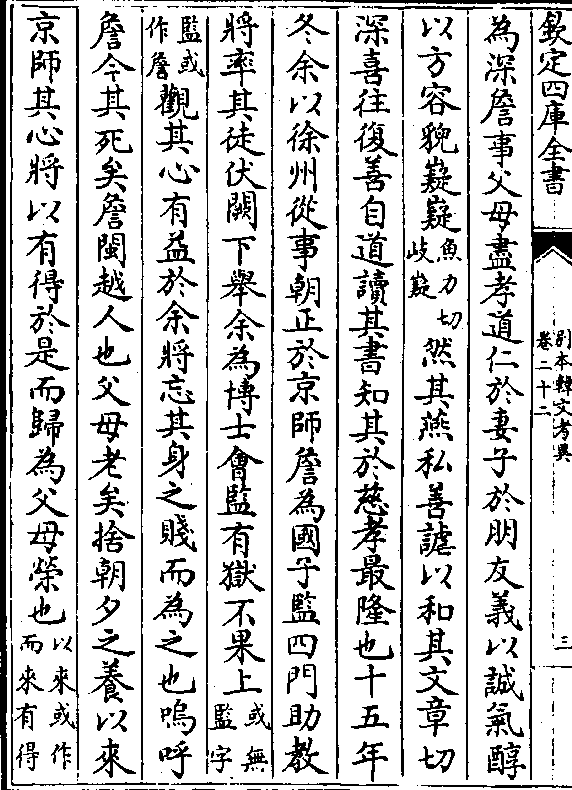 欽定四庫全書
別本韓文考異
卷二十二
三
為深詹事父母盡孝道仁於妻子於朋友義以誠氣醇
以方容貌嶷嶷魚力切岐嶷然其燕私善謔以和其文章切
深喜往復善自道讀其書知其於慈孝最隆也十五年
冬余以徐州從事朝正於京師詹為國子監四門助教
將率其徒伏闕下舉余為博士會監有獄不果上或無監字
監或作詹觀其心有益於余將忘其身之賤而為之也嗚呼
詹今其死矣詹閩越人也父母老矣捨朝夕之養以來
京師其心將以有得於是而歸為父母榮也以來或作而來有得